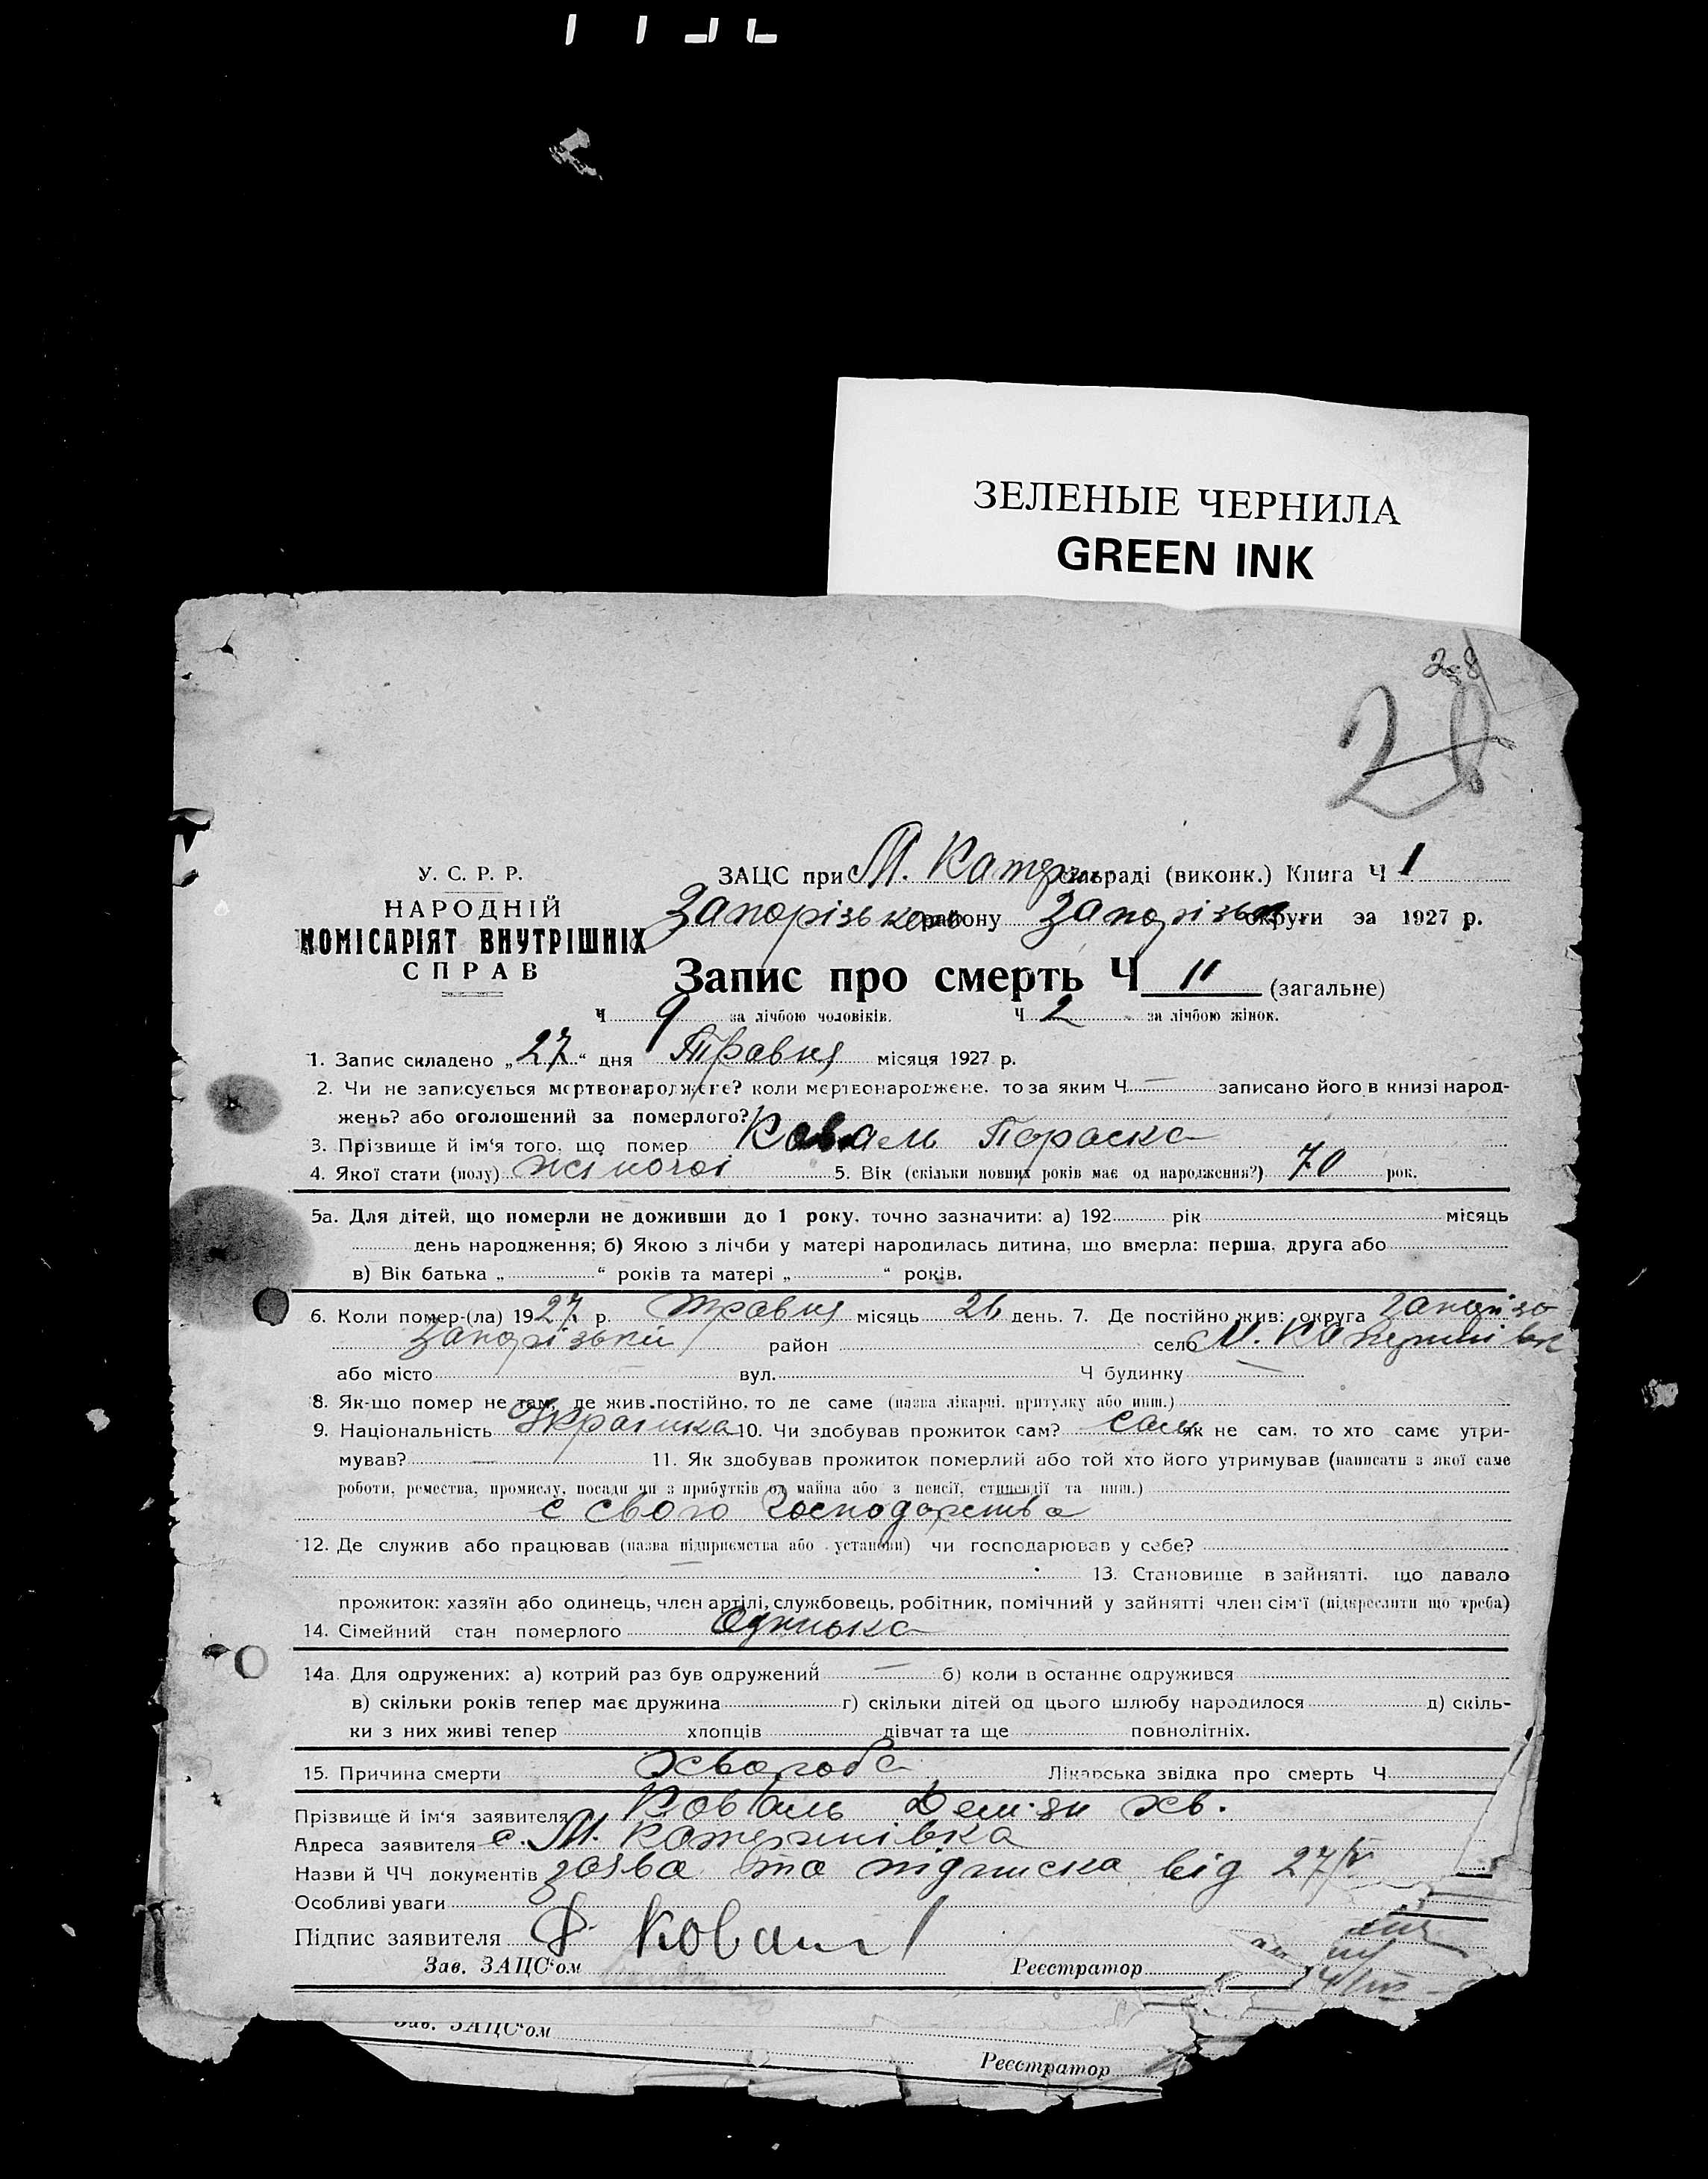 ЗЕЛЕНЫЕ ЧЕРНИЛА
GREEN INK
28
28
У. С. Р. Р.
НАРОДНІЙ
КОМІСАРІЯТ ВНУТРІШНІХ
СПРАВ
ЗАЦС при М. Катер. сільраді (виконк.) Книга Ч 1
Запорізького району Запорізьк округи за 1927 р.
Запис про смерть Ч 11 (загальне)
Ч 9 за лічбою чоловіків. Ч 2 за лічбою жінок.
1. Запис складено „27“ дня Травня місяця 1927 р.
2. Чи не записується мертвонароджене? коли мертвонароджене, то за яким Ч — записано його в книзі народ-
жень? або оголошений за померлого?
3. Прізвище й ім‘я того, що помер Коваль Параска
4. Якої стати (полу) жіночоі 5. Вік (скільки повних років має од народження?) 70 рок.
5а. Для дітей, що померли не доживши до 1 року, точно зазначити: а) 192 рік місяць
день народження; б) Якою з лічби у матері народилась дитина, що вмерла: перша, друга або
в) Вік батька „ “ років та матері „ “ років.
6. Коли помер-(ла) 1927 р. травня місяць 26 день. 7. Де постійно жив: округа Запорізь
Запорізький район село М. Катеринівк
або місто вул. Ч будинку —
8. Як-що помер не там, де жив постійно, то де саме (назва лікарні, притулку або инш.)
9. Національність Украінка 10. Чи здобував прожиток сам? сам як не сам, то хто саме утри-
мував? — 11. Як здобував прожиток померлий або той хто його утримував (написати з якої саме
роботи, ремества, промислу, посади чи з прибутків од майна або з пенсії, стипендії та инш.)
с свого господарства
12. Де служив або працював (назва підприємства або установи) чи господарював у себе?
— 13. Становище в зайнятті, що давало
прожиток: хазяїн або одинець, член артілі, службовець, робітник, помічний у зайнятті член сім‘ї (підкреслити що треба)
14. Сімейний стан померлого Одинока
14а. Для одружених: а) котрий раз був одружений — б) коли в останнє одружився
в) скільки років тепер має дружина г) скільки дітей од цього шлюбу народилося д) скіль-
ки з них живі тепер хлопців дівчат та ще повнолітніх.
15. Причина смерти хвороба Лікарська звідка про смерть Ч
Прізвище й ім‘я заявителя Коваль Дем‘ян хв.
Адреса заявителя с. М. Катеринівка
Назви й ЧЧ документів заява та підписка від 27/V
Особливі уваги
Підпис заявителя Коваль
Зав. ЗАЦС‘ом Реєстратор
Зав. ЗАЦС‘ом
Реєстратор